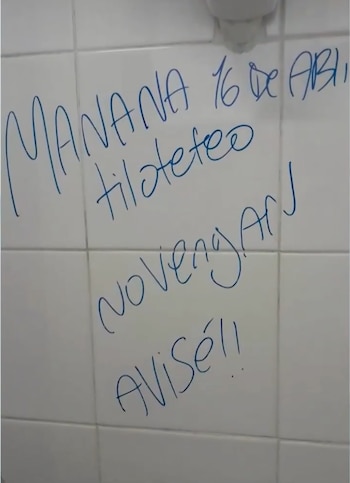 MAÑANA 16 DE ABRI
tiloteteo
NO VENgAN
AVISÉ!!